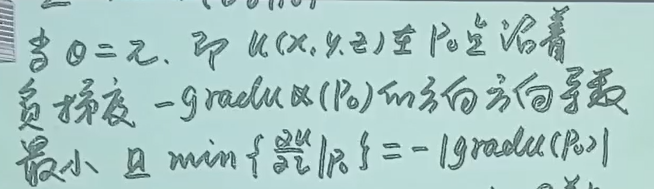 当 θ=π. 即 u(x.y.z)在 P₀点 沿着
负梯度 -gradu(P₀)的方向方向导数
最小 且 min{∂u/∂l|P₀}=-|gradu(P₀)|